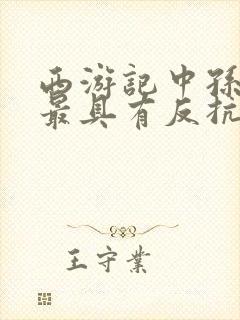 西游記中孫
最具有反抗
王守業